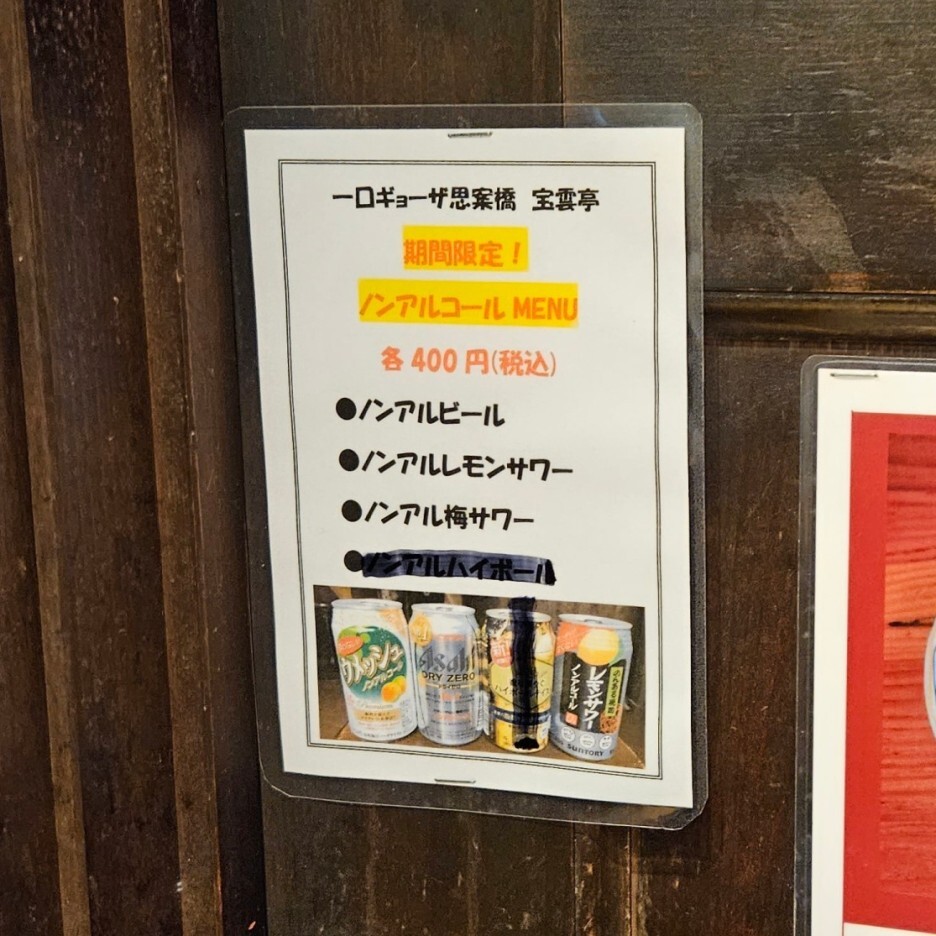 一口ギョーザ思案橋 宝雲亭
期間限定!
ノンアルコール MENU
各400円(税込)
●ノンアルビール
●ノンアルレモンサワー
●ノンアル梅サワー
●ノンアルハイボール
ウメッシュ
ノンアルコール
Asahi
DRY ZERO
ハイボール
レモンサワー
ノンアルコール
SUNTORY